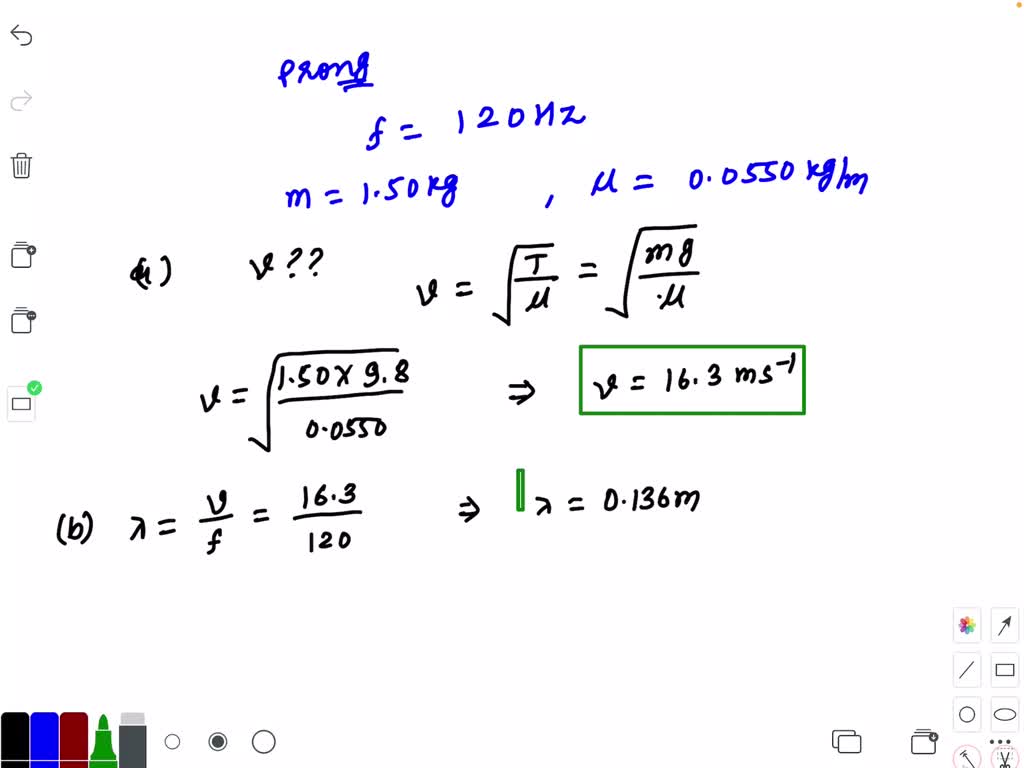 prong
f = 120Hz
m = 1.50 kg , μ = 0.0550 kg/m
(a) v ?? v = √(T/μ) = √(mg/μ)
v = √(1.50 × 9.8/0.0550) ⇒ v = 16.3 ms⁻¹
(b) λ = v/f = 16.3/120 ⇒ λ = 0.136m